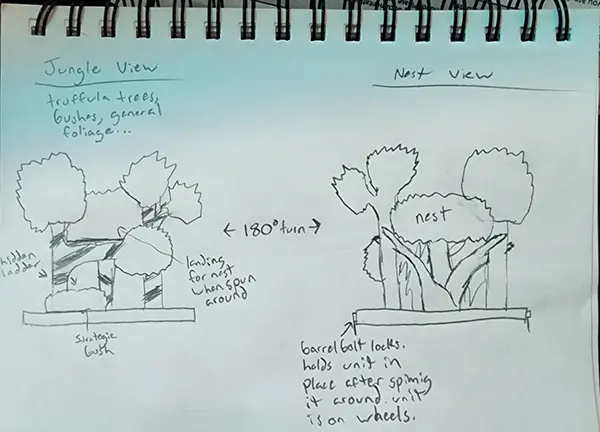 Jungle View
truffula trees,
bushes, general
foliage...
hidden
ladder
landing
for nest
when spun
around
strategic
bush
← 180° turn →
Nest View
nest
barrel bolt locks.
holds unit in
place after spinnig
it around. unit
is on wheels.